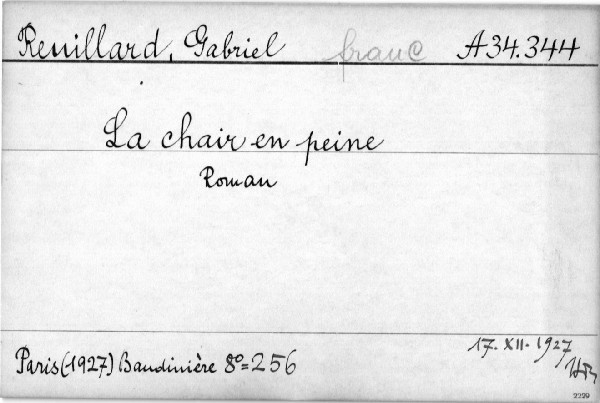 Reuillard, Gabriel franc A34.344
La chair en peine
Roman
17. XII. 1927
Paris (1927) Baudinière 8°= 256
2229